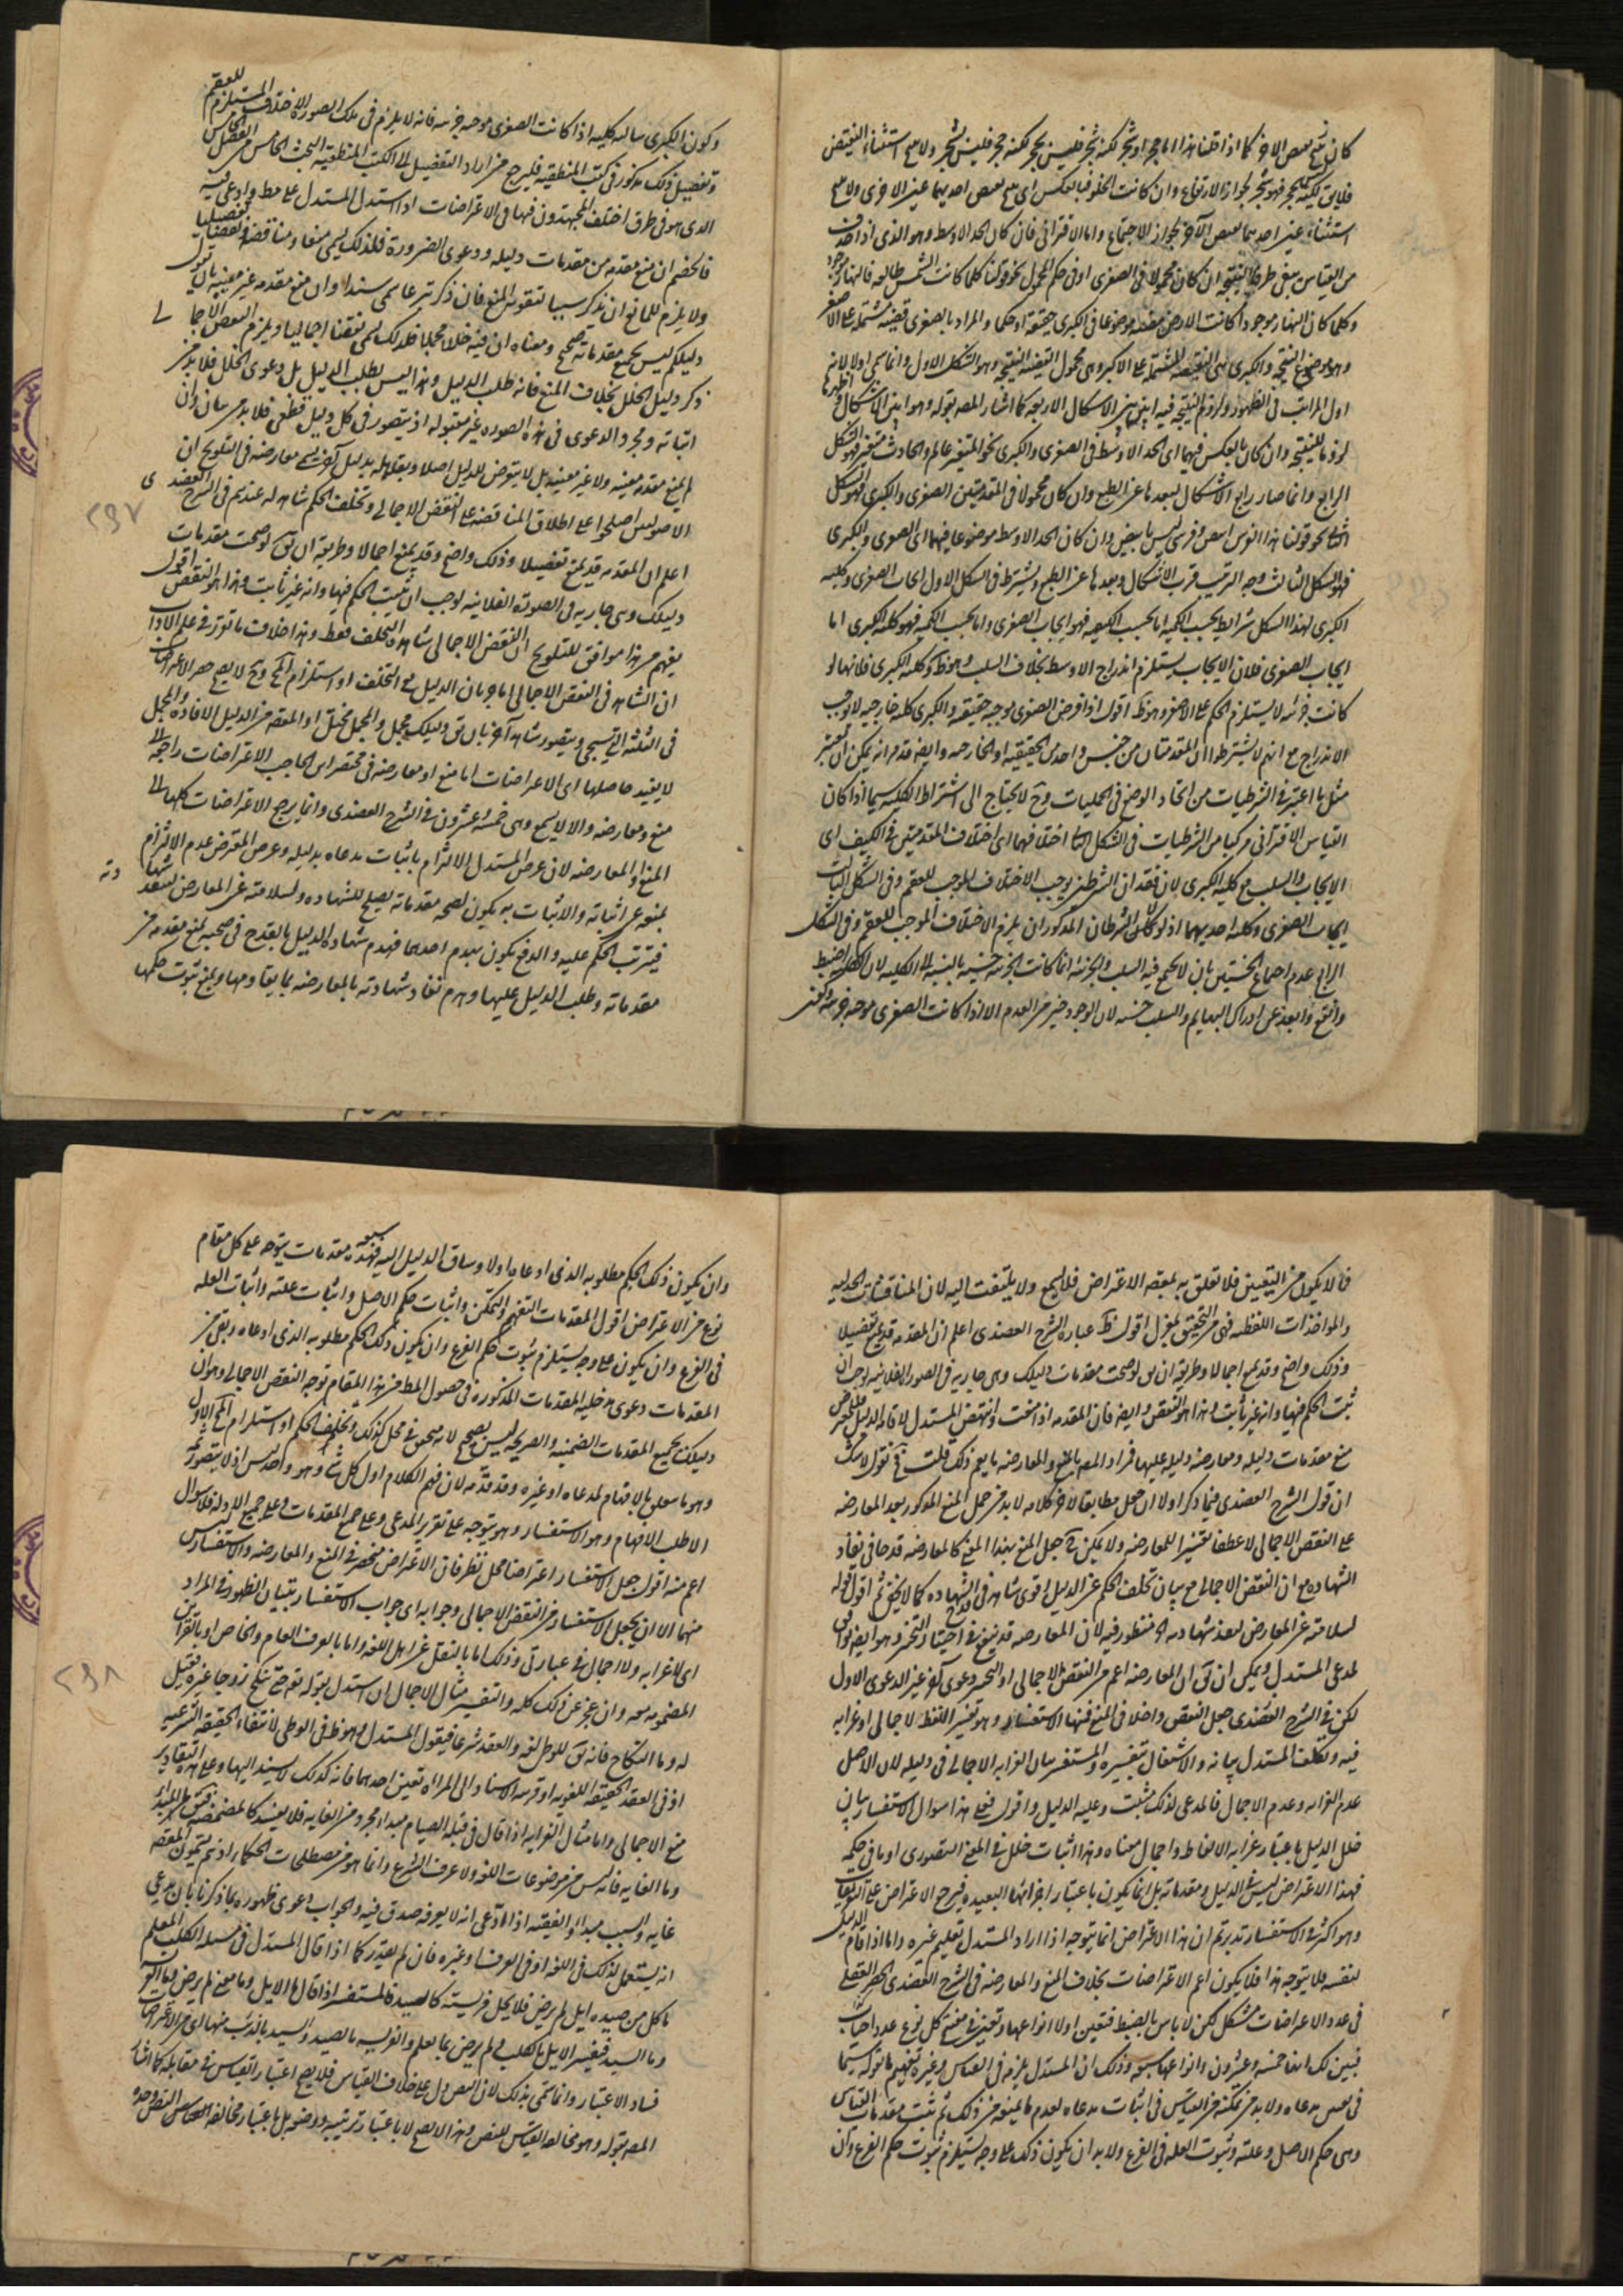 كان مع بعض الاخر كما اذا قلنا هذا اما حجر او شجر لكنه شجر فليس بحجر لكنه حجر فليس بشجر ولا مع استثناء النقيض
فلا يق لكنه ليس بحجر فهو شجر لجواز الارتفاع وان كانت الخلو فبالعكس اى مع بعض احديهما عين الاخرى ولا مع
استثناء عين احديهما بعض الآخر لجواز الاجتماع واما الاقترانى فان كان الحد الاوسط وهو الذى اذا حذف
من القياس بقى طرفا النتيجه ان كان محمولا فى الصغرى او فى حكم المحمول نحو قولنا كلما كانت الشمس طالعه فالنهار موجود
وكلما كان النهار موجودا كانت الارض مضيئه موضوعا فى الكبرى حقيقة او حكما والمراد بالصغرى قضيه مشتمله على الاصغر
وهو موضوع النتيجه والكبرى هى القضيه المشتمله على الاكبر وهى محمول القضيه النتيجه وهو الشكل الاول وانما سمى اولا لانه
اول المراتب فى الظهور ولزوم النتيجه فيه ابين من الاشكال الاربعه كما اشار المصه بقوله وهو ابين الاشكال و اظهرها
لزوما للنتيجه وان كان بالعكس فيهما اى الحد الاوسط فى الصغرى والكبرى نحو المتغير عالم والحادث متغير فهو الشكل
الرابع وانما صار رابع الاشكال لبعدها عن الطبع وان كان محمولا فى المقدمتين الصغرى والكبرى فهو الشكل
الثانى نحو قولنا هذا الفرس ابيض وفرسى ليس بابيض وان كان الحد الاوسط موضوعا فيهما اى الصغرى والكبرى
فهو الشكل الثالث وجه الترتيب قرب الاشكال وبعدها عن الطبع ويشترط فى الشكل الاول ايجاب الصغرى وكليه
الكبرى لهذا الشكل شرايط بحسب الكميه اما بحسب الكيفيه فهو ايجاب الصغرى واما بحسب الكميه فهو كليه الكبرى اما
ايجاب الصغرى فلان الايجاب يستلزم اندراج الاوسط بخلاف السلب وهو ظ وكليه الكبرى فلانها لو
كانت جزئيه لا يستلزم الحكم على الاصغر وهو ظ اقول اذا فرض الصغرى موجبه حقيقيه والكبرى كليه خارجيه لا توجب
الاندراج مع انهم لا يشترطوا ان المقدمتان من جنس واحد من الحقيقيه او الخارجيه وايضا قد مر انه يمكن ان يعتبر
مثل ما اعتبر فى الشرطيات من اتحاد الوضع فى الحمليات وح لا يحتاج الى اشتراط الكليه سيما اذا كان
القياس الاقترانى مركبا من الشرطيات فى الشكل الثانى اختلافهما اى اختلاف المقدمتين فى الكيف اى
الايجاب والسلب مع كليه الكبرى لان فقدان الشرطين يوجب الاختلاف الموجب للعقم وفى الشكل الثالث
ايجاب الصغرى وكليه احديهما اذ لو لا الشرطان المذكوران يلزم الاختلاف الموجب للعقم وفى الشكل
الرابع عدم اجتماع الخستين بان لا يجتمع فيه السلب والجزئيه انما كانت الجزئيه خسيسه بالنسبه الى الكليه لان الكليه اضبط
وانفع وابعد عن ادراك البهايم والسلب خسه لان الوجود خير من العدم الا اذا كانت الصغرى موجبه جزئيه وكون
وكون الكبرى سالبه كليه اذا كانت الصغرى موجبه جزئيه فانه لا يلزم فى تلك الصورة الاختلاف المستلزم للعقم
وتفصيل ذلك مذكور فى كتب المنطقيه فليرجع من اراد التفصيل الى الكتب المنطقيه البحث الخامس من الفصل الخامس
الذى هو فى طرق اختلف المجتهدون فيها فى الاعتراضات اذا استدل المستدل على مط وادعى فيه
فالخصم ان منع مقدمه من مقدمات دليله ودعوى الضرورة فلذلك يسمى منعا ومناقضه ونقضا تفصيليا
ولا يلزم للمانع ان يذكر سببا لتقويه المنع فان ذكر تبرعا سمى سندا وان منع مقدمه غير معينه بان يقول
دليلكم ليس بجميع مقدماته صحيح ومعناه ان فيه خللا مجملا فلذلك يسمى نقضا اجماليا ويلزم النقض الاجما لى
ذكر دليل الخلل بخلاف المنع فانه طلب الدليل وهذا ليس بطلب الدليل بل دعوى الخلل فلا بد من
اثباته ومجرد الدعوى فى هذه الصوره غير مقبوله اذ يتصور فى كل دليل قطعى فلا بد من بيان وان
لم يمنع مقدمه معينه ولا غير معينه بل لا يتعرض للدليل اصلا ويقابله بدليل آخر يسمى معارضه فى التلويح ان
الاصوليين اصطلحوا على اطلاق المناقضه على النقض الاجمالى وتخلف الحكم شاهد له عندهم فى الشرح العضدى
اعلم ان المقدمه قد يمنع تفصيلا وذلك واضح وقد يمنع اجمالا وطريقه ان يق لو صحت مقدمات
دليلك وهى جاريه فى الصورة الفلانيه لوجب ان يثبت الحكم فيها وانه غير ثابت وهذا هو النقض اقول
يفهم من هذا موافق للتلويح ان النقض الاجمالى شاهده التخلف فقط وهذا خلاف ما تقرر فى علم الاداب
ان الشاهد فى النقض الاجمالى اما جريان الدليل مع التخلف او استلزام المح وح لا يصح حصر الاعتراضات
فى الثلثه التى يجى ويتصور شاهد آخر بان يق دليلك مجمل والمجمل مختل او المقصد من الدليل الافاده والمجمل
لا يفيد حاصلها اى الاعتراضات اما منع او معارضه فى مختصر ابن الحاجب الاعتراضات راجعه الى
منع ومعارضه والا لا يسمع وهى خمسه وعشرون فى الشرح العضدى وانما يرجع الاعتراضات كلها الى
المنع او المعارضه لان غرض المستدل الالزام باثبات مدعاه بدليله وغرض المعترض عدم الالتزام
بمنعه عن اثباته والاثبات به يكون لصحه مقدماته يصلح للشهاده ولسلامته عن المعارض لينفذ شهادته
فيترتب الحكم عليه والدفع يكون بهدم احدهما فهدم شهادة الدليل بالقدح فى صحته بمنع مقدمه من
مقدماته وطلب الدليل عليها وهدم نفاذ شهادته بالمعارضه بما يقاومها ويمنع ثبوت حكمها
٢٩٧
فما لا يكون من القبيلين فلا تعلق به بمقصد الاعتراض فلا يسمع ولا يلتفت اليه لان المناقشات الجدليه
والمواخذات اللفظيه فهى من التحقيق بمعزل اقول ظ عبارة الشرح العضدى اعلم ان المقدمه قد يمنع تفصيلا
وذلك واضح وقد يمنع اجمالا وطريقه ان يق لو صحت مقدمات دليلك وهى جاريه فى الصور الفلانيه لوجب ان
يثبت الحكم فيها وانه غير ثابت وهذا هو النقض وايضا فان المقدمه اذا منعت وانتهض المستدل لاقامه الدليل
منع مقدمات دليله ومعارضه دليله عليها فمراد المصه بالمنع والمعارضه ما يعم ذلك قلت ح نقول لا شك
ان قول الشرح العضدى فيما ذكر اولا ان جعل مطابقا لآخر كلامه لا بد من حمل المنع المذكور بعد المعارضه
على النقض الاجمالى لا عطفا تفسيرا للمعارضه ولا يمكن ح جعل المنع بهذا المعنى كالمعارضه قدحا فى نفاذ
الشهاده مع ان النقض الاجمالى مع بيان تخلف الحكم عن الدليل اقوى شاهد فى الشهاده كما لا يخفى ثم اقول قوله
لسلامته عن المعارض لينفذ شهادته الخ منظور فيه لان المعارضه قد تقع فى
لمدعى المستدل ويمكن ان يق ان المعارضه اعم من النقض الاجمالى او دعوى آخر غير الدعوى الاول
لكن فى الشرح العضدى جعل النقض داخلا فى المنع فمنها الاستفسار وهو تفسير اللفظ لاجمالى او غرابه
فيه وتكلفنا المستدل بيانه والاشتغال بتفسيره والمستفسر بيان الغرابه الاجمالى فى دليله لان الاصل
عدم الغرابه وعدم الاجمال فالمدعى لذلك مثبت وعليه الدليل واقول فعلى هذا سوال الاستفسار بيان
خلل الدليل باعتبار غرابه الالفاظ واجمال معناه وهذا اثبات خلل فى المعنى التصورى او ما فى حكمه
فهذا الاعتراض ليس فى الدليل ومقدماته بل انما يكون باعتبار اجزائها البعيده فيرجع الاعتراض على التعريفات
وهو اكثره الاستفسار تدبر ثم ان هذا الاعتراض انما يتوجه اذا اراد المستدل تعليم غيره واما اذا اقام الدليل
لنفسه فلا يتوجه هذا فلا يكون اعم الاعتراضات بخلاف المنع والمعارضه فى الشرح العضدى الحصر العقلى
فى عدد الاعتراضات مشكل لكن لا باس بالضبط فتعين اولا انواعها وتعين فى كل نوع عدد
فنبين لك انها خمسه وعشرون وانواعها سبعه وذلك ان المستدل يلزمه فى القياس وغيره تفهيم ما يقوله سيما
فى مدعاه ولا بد من تمكنه من القياس فى اثبات مدعاه لعدم ما يمنعه من ذلك ثم يثبت مقدمات القياس
وهى حكم الاصل وعلته وثبوت العله فى الفرع ولا بد ان يكون ذلك على وجه يستلزم ثبوت حكم الفرع وان
وان يكون ذلك الحكم مطلوبه الذى ادعاه اولا وساق الدليل اليه فهذه سبعه مقدمات يتوجه على كل مقام
نوع من الاعتراض اقول المقدمات التفهيم والتمكن واثبات حكم الاصل واثبات علته واثبات العله
فى الفرع وان يكون على وجه يستلزم ثبوت حكم الفرع وان يكون ذلك الحكم مطلوبه الذى ادعاه وبقى من
المقدمات دعوى مدخليه المقدمات المذكورة فى حصول المط من هذا المقام توجه النقض الاجمالى وهو ان
دليلك بجميع المقدمات الضمنيه والصريحه ليس بصحيح لانه يتحقق فى محل كذلك وتخلف الحكم او استلزام المح الاول
وهو ما يتعلق بالافهام لمدعاه او غيره وقد قدمه لان فهم الكلام اول كل شى وهو واحد ليس اذ لا يتصور ثم
الا طلب الافهام وهو الاستفسار وهو يتوجه على تقرير المدعى وعلى جميع المقدمات وعلى جميع الادله فلا سوال
اعم منه اقول جعل الاستفسار اعتراضا محل نظر فان الاعتراض منحصر فى المنع والمعارضه والاستفسار ليس
منهما الا ان يجعل الاستفسار من النقض الاجمالى وجوابه اى جواب الاستفسار بتبيان الظهور فى المراد
اى لا غرابه ولا اجمال فى عبارتى وذلك اما بالنقل عن اهل اللغه واما بالعرف العام والخاص او بالقراين
المضمومه معه وان عجز عن ذلك كله والتفسير مثال الاجمال ان استدل بقوله تع حتى تنكح زوجا غيره فيقول
له وما النكاح فانه يق للوطى لغه والعقد شرعا فيقول المستدل وهو ظ فى الوطى لانتفاء الحقيقه الشرعيه
او فى العقد الحقيقه اللغويه او قرينه الاسناد الى المراه تعين احدهما فانه كذلك لا يسند اليها وعلى هذه التقادير
منع الاجمالى واما مثال الغرابه اذا قال فى قبله الصيام مبدا مجرد من الغايه فلا يفسد كالمضمضه فيق ما المبدأ
وما الغايه فانه ليس من موضوعات اللغه ولا عرف الشرع وانما هو من مصطلحات الحكماء اذ هم يسمون المقصد
غايه والسبب مبدأ والفقيه اذا ادعى انه لا يعرفه صدق فيه والجواب دعوى ظهوره بما ذكرنا بان يدعى
انه يستعمل لذلك فى اللغه او فى العرف او غيره فان لم يقدر كما اذا قال المستدل فى مسله الكلب المعلم
ماكل من صيده ايل لم يرض فلا يحل فريسته كالسيد فالمستفسر اذا قال ما الايل وما معنى لم يرض وما الفريسه
وما السيد فيفسر الايل بالكلب ولم يرض بما لم يعلم والفريسه بالصيد والسيد بالذئب منها اى من الاعتراضات
فساد الاعتبار وانما سمى بذلك لان النص دل على خلاف القياس فلا يصح اعتبار القياس فى مقابله كما اشار
المصه بقوله وهو مخالفه القياس للنص وهذا لا يصح لا باعتبار ترتيبه ووضعه بل باعتبار مخالفه القياس النص وحده
٢٩٨